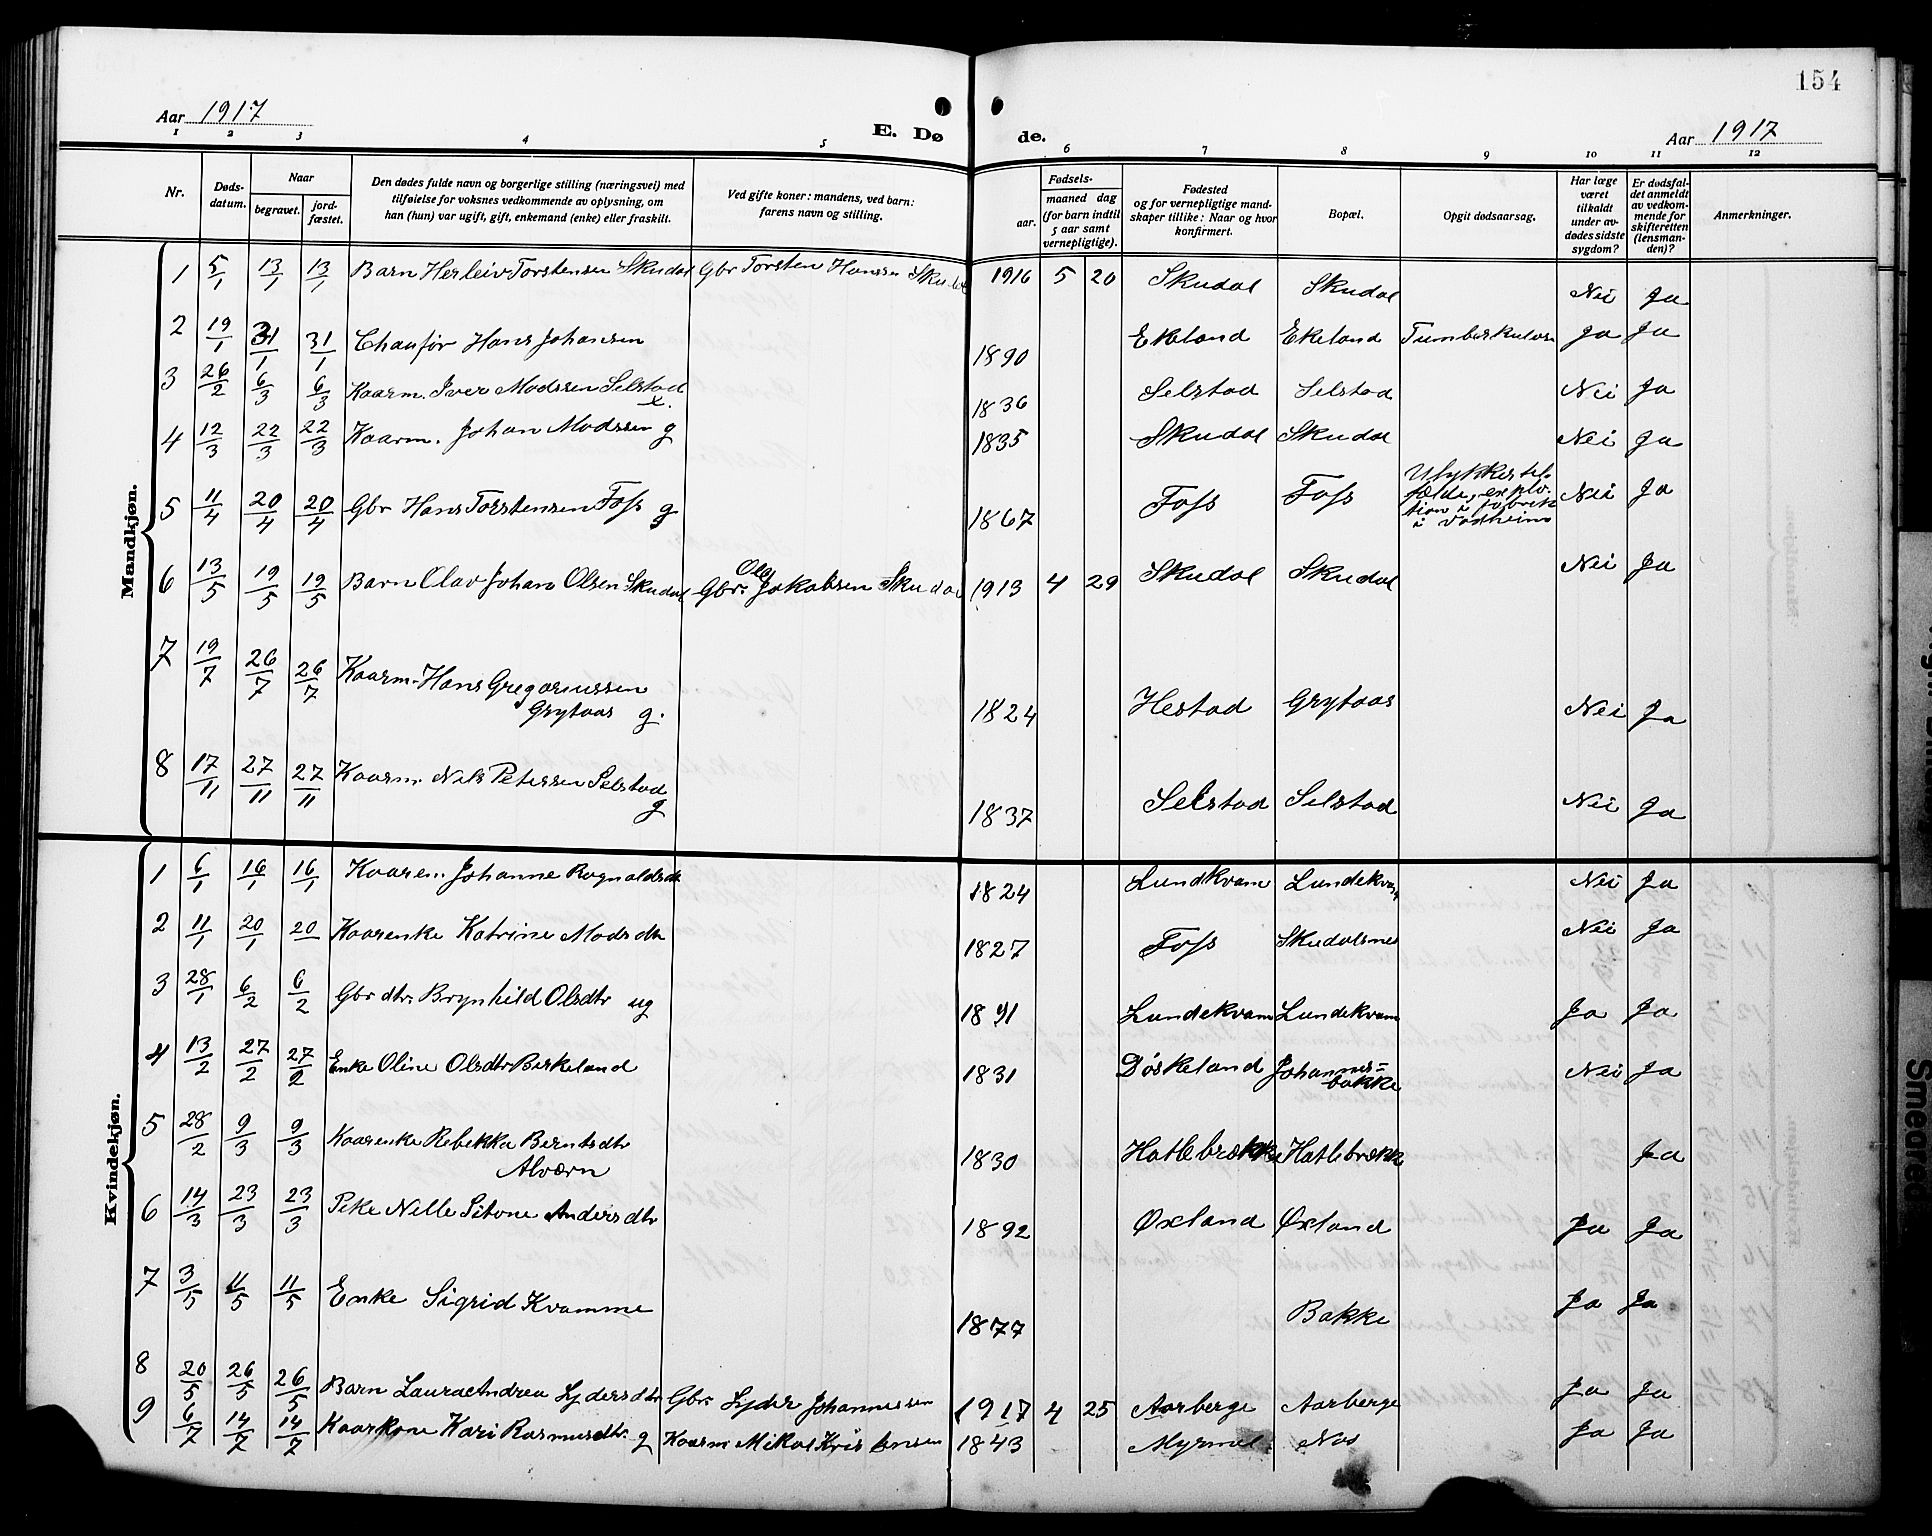 154
Aar 1917
E. Dø de.
Aar 1917
1 2 3 4 5 6 7 8 9 10 11 12
Nr.
Døds-datum.
Naar
begravet.
jord-fæstet.
Den dødes fulde navn og borgerlige stilling (næringsvei) med
tilføielse for voksnes vedkommende av oplysning, om
han (hun) var ugift, gift, enkemand (enke) eller fraskilt.
Ved gifte koner: mandens, ved barn:
farens navn og stilling.
Fødsels-
aar.
maaned dag
(for barn indtil
5 aar samt
vernepligtige).
Fødested
og for vernepligtige mand-
skaper tillike: Naar og hvor
konfirmert.
Bopæl.
Opgit dødsaarsag.
Har læge
været
tilkaldt
under av-
dødes sidste
sygdom?
Er dødsfal-
det anmeldt
av vedkom-
mende for
skifteretten
(lensman-
den)?
Anmerkninger.
Mandkjøn.
1 5/1 13/1 13/1 Barn Herleiv Torstensen Skudal Gbr Torsten Hansen Skudal 1916 5 20 Skudal Skudal Nei Ja
2 19/1 31/1 31/1 Chaufør Hans Johansen 1890 Ekeland Ekeland Tumberkulose Ja Ja
3 26/2 6/3 6/3 Kaarm. Iver Madssen Selstad e. 1836 Selstad Selstad Nei Ja
4 12/3 22/3 22/3 Kaarm. Johan Madssen g 1835 Skudal Skudal Nei Ja
5 11/4 20/4 20/4 Gbr Hans Torstensen Foss g 1867 Foss Foss Ulykkestil-
fælde, explo-
tion i fabrik
i Vadheim Nei Ja
6 13/5 19/5 19/5 Barn Olav Johan Olsen Skudal Gbr. Ola Jakobsen Skudal 1913 4 29 Skudal Skudal Nei Ja
7 19/7 26/7 26/7 Kaarm. Hans Gregoriussen
Grytaas g. 1824 Hestad Grytaas Nei Ja
8 17/11 27/11 27/11 Kaarm. Nels Petersen Selstad
g 1837 Selstad Selstad Nei Ja
Kvindekjøn.
1 6/1 16/1 16/1 Kaaren. Johanne Ragnaldsdt 1824 Lundkvam Lundekvam Nei Ja
2 11/1 20/1 20 Kaarenke Katrine Madsdtr 1827 Foss Skudalsnes Nei Ja
3 28/1 6/2 6/2 Gbr dtr. Brynhild Olsdtr ug 1891 Lundekvam Lundekvam Ja Ja
4 13/2 27/2 27/2 Enke Oline Olsdtr Birkeland 1831 Døskeland Johannes=
bakke Nei Ja
5 28/2 9/3 9/3 Kaarenke Rebekka Berntsdtr
Alværn 1830 Hatlebrække Hatlebrekk Ja
6 14/3 23/3 23/3 Pike Nille Sitone Andersdtr 1892 Øxland Øxland Ja Ja
7 3/5 11/5 11/5 Enke Sigrid Kvamme 1877 Bakke Ja Ja
8 20/5 26/5 26/5 Barn Laura Andrea Lydersdtr Gbr. Lyder Johannessen 1917 4 25 Aarberge Aarberge Ja Ja
9 6/7 14/7 14/7 Kaarkone Kari Rasmusdtr. g Kaarm Mikal Kristensen 1843 Myrmel Nas Ja Ja
Smedred